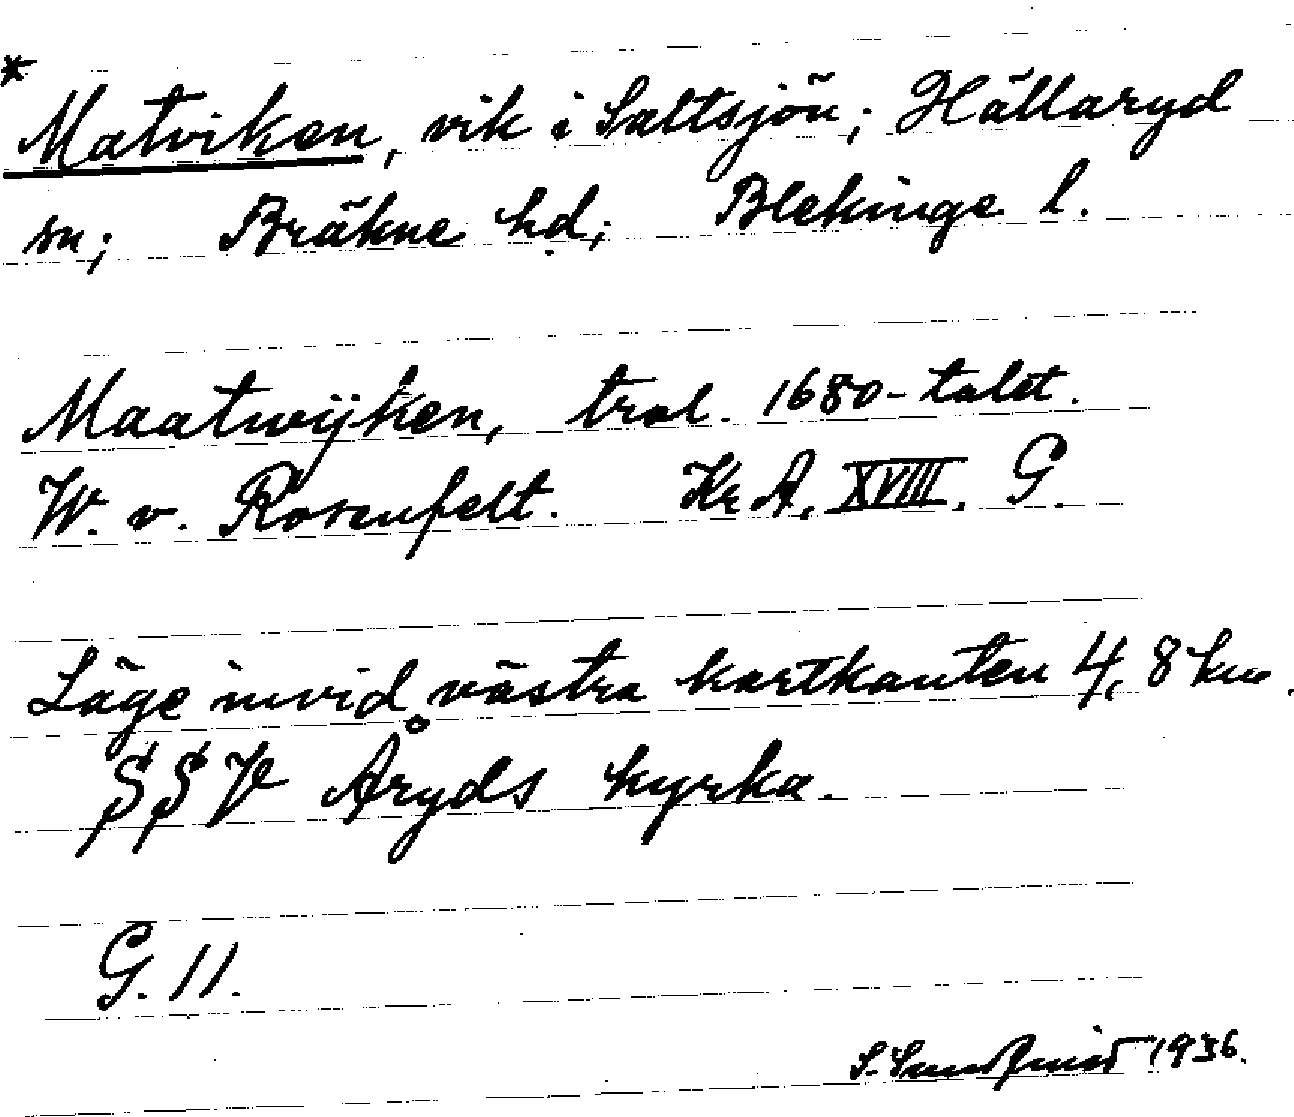 * Matviken, vik i Saltsjön; Hällaryd
sn; Bräkne hd; Blekinge l.
Maatwijken, trol. 1680-talet.
W. v. Rosenfelt. Kr A. XVIII. G.
Läge invid västra kartkanten 4,8 km.
SSV Åryds kyrka.
G. 11.
S. 1936.